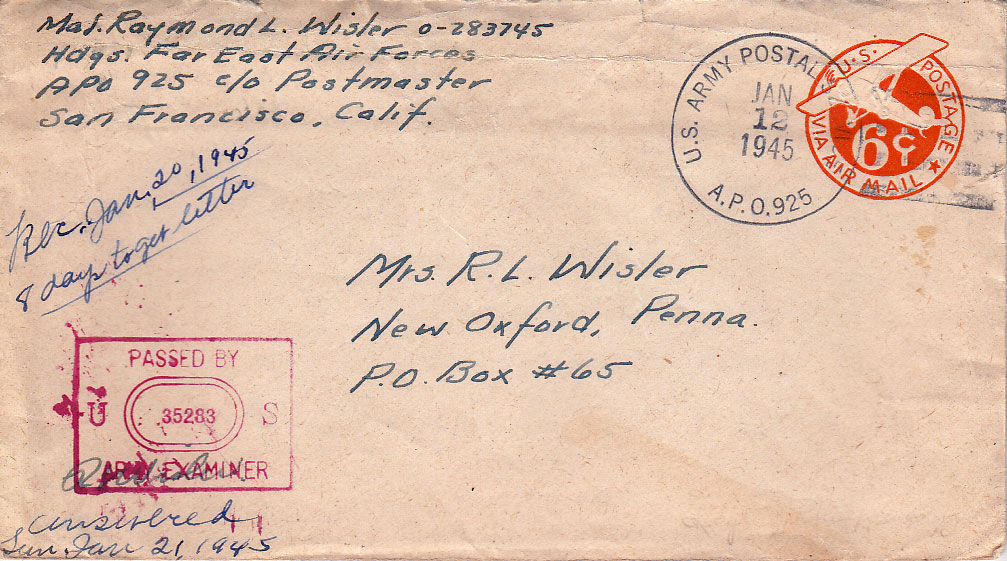 Maj. Raymond L. Wisler O-283745
Hdqs. Far East Air Forces
APO 925 c/o Postmaster
San Francisco, Calif.
U.S. ARMY POSTAL
JAN
12
1945
A.P.O. 925
U.S. POSTAGE
6¢
VIA AIR MAIL
Rec. Jan. 20, 1945
8 days to get letter
Mrs. R. L. Wisler
New Oxford, Penna.
P.O. Box #65
PASSED BY
U 35283 S
ARMY EXAMINER
answered
Sun. Jan 21, 1945